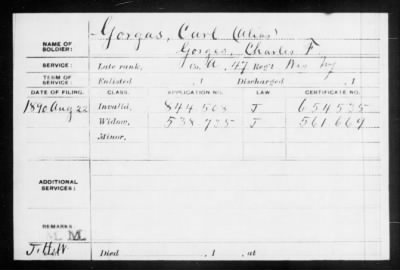 Gorgas, Carl (Alias)
NAME OF SOLDIER: Gorges, Charles F
SERVICE: Late rank, Co. A, 47 Reg't Wis Inf
TERM OF SERVICE: Enlisted , 1 Discharged , 1
DATE OF FILING. CLASS. APPLICATION NO. LAW. CERTIFICATE NO.
1890 Aug 22 Invalid, 844508 J 654535
Widow, 538735 J 561669
Minor,
ADDITIONAL SERVICES:
REMARKS
M
Died , 1 , at